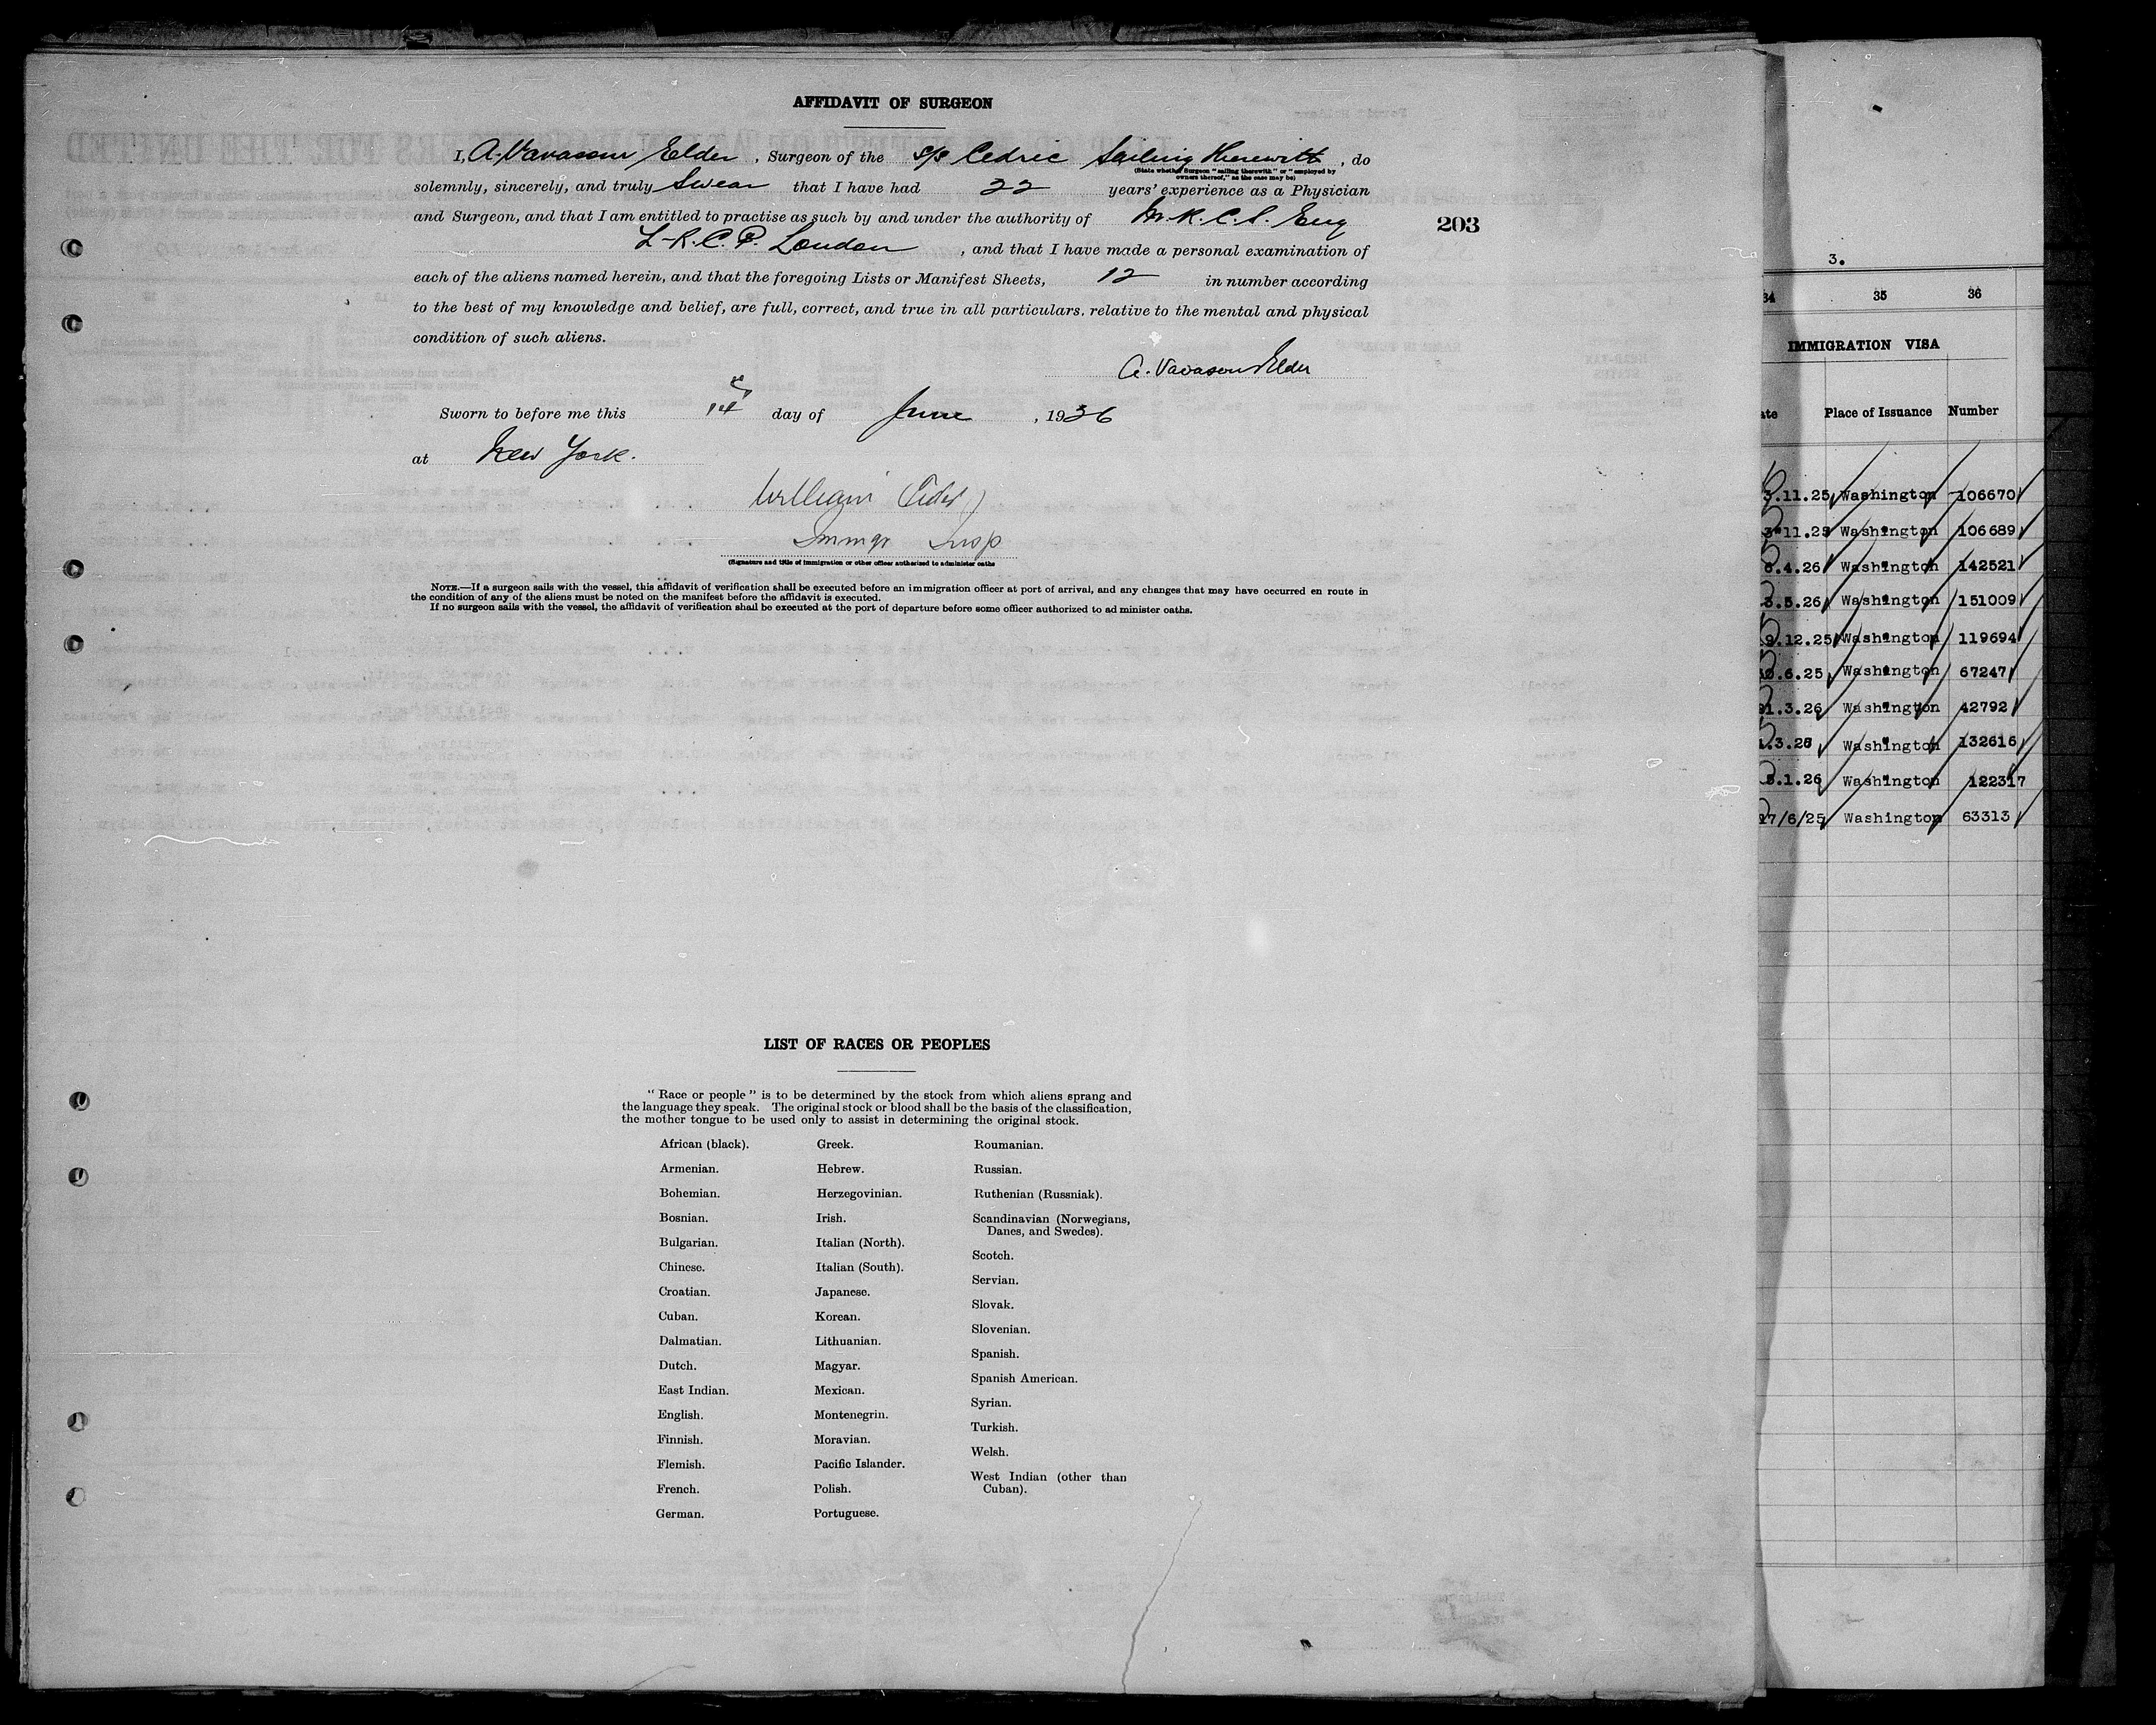 AFFIDAVIT OF SURGEON
I, A. Vavasour Elder, Surgeon of the S/S Cedric Sailing Therewith, do
(State whether Surgeon "sailing therewith" or "employed by
owners thereof," as the case may be)
solemnly, sincerely, and truly Swear that I have had 22 years' experience as a Physician
and Surgeon, and that I am entitled to practise as such by and under the authority of M.R.C.S. Eng
203
L.R.C.P. London, and that I have made a personal examination of
each of the aliens named herein, and that the foregoing Lists or Manifest Sheets, 12 in number according
to the best of my knowledge and belief, are full, correct, and true in all particulars, relative to the mental and physical
condition of such aliens.
A. Vavasour Elder
Sworn to before me this day of June, 19
at New York.
William
Immgr Insp
(Signature and title of immigration or other officer authorized to administer oaths
NOTE.—If a surgeon sails with the vessel, this affidavit of verification shall be executed before an immigration officer at port of arrival, and any changes that may have occurred en route in
the condition of any of the aliens must be noted on the manifest before the affidavit is executed.
If no surgeon sails with the vessel, the affidavit of verification shall be executed at the port of departure before some officer authorized to administer oaths.
LIST OF RACES OR PEOPLES
"Race or people" is to be determined by the stock from which aliens sprang and
the language they speak. The original stock or blood shall be the basis of the classification,
the mother tongue to be used only to assist in determining the original stock.
African (black).
Armenian.
Bohemian.
Bosnian.
Bulgarian.
Chinese.
Croatian.
Cuban.
Dalmatian.
Dutch.
East Indian.
English.
Finnish.
Flemish.
French.
German.
Greek.
Hebrew.
Herzegovinian.
Irish.
Italian (North).
Italian (South).
Japanese.
Korean.
Lithuanian.
Magyar.
Mexican.
Montenegrin.
Moravian.
Pacific Islander.
Polish.
Portuguese.
Roumanian.
Russian.
Ruthenian (Russniak).
Scandinavian (Norwegians,
Danes, and Swedes).
Scotch.
Servian.
Slovak.
Slovenian.
Spanish.
Spanish American.
Syrian.
Turkish.
Welsh.
West Indian (other than
Cuban).
3.
34 35 36
IMMIGRATION VISA
Place of Issuance Number
3.11.25 Washington 106670
3.11.25 Washington 106689
.4.26 Washington 142521
3.5.26 Washington 151009
9.12.25 Washington 119694
.6.25 Washington 67247
1.3.26 Washington 42792
.3.26 Washington 132616
5.1.26 Washington 122317
7/6/25 Washington 63313